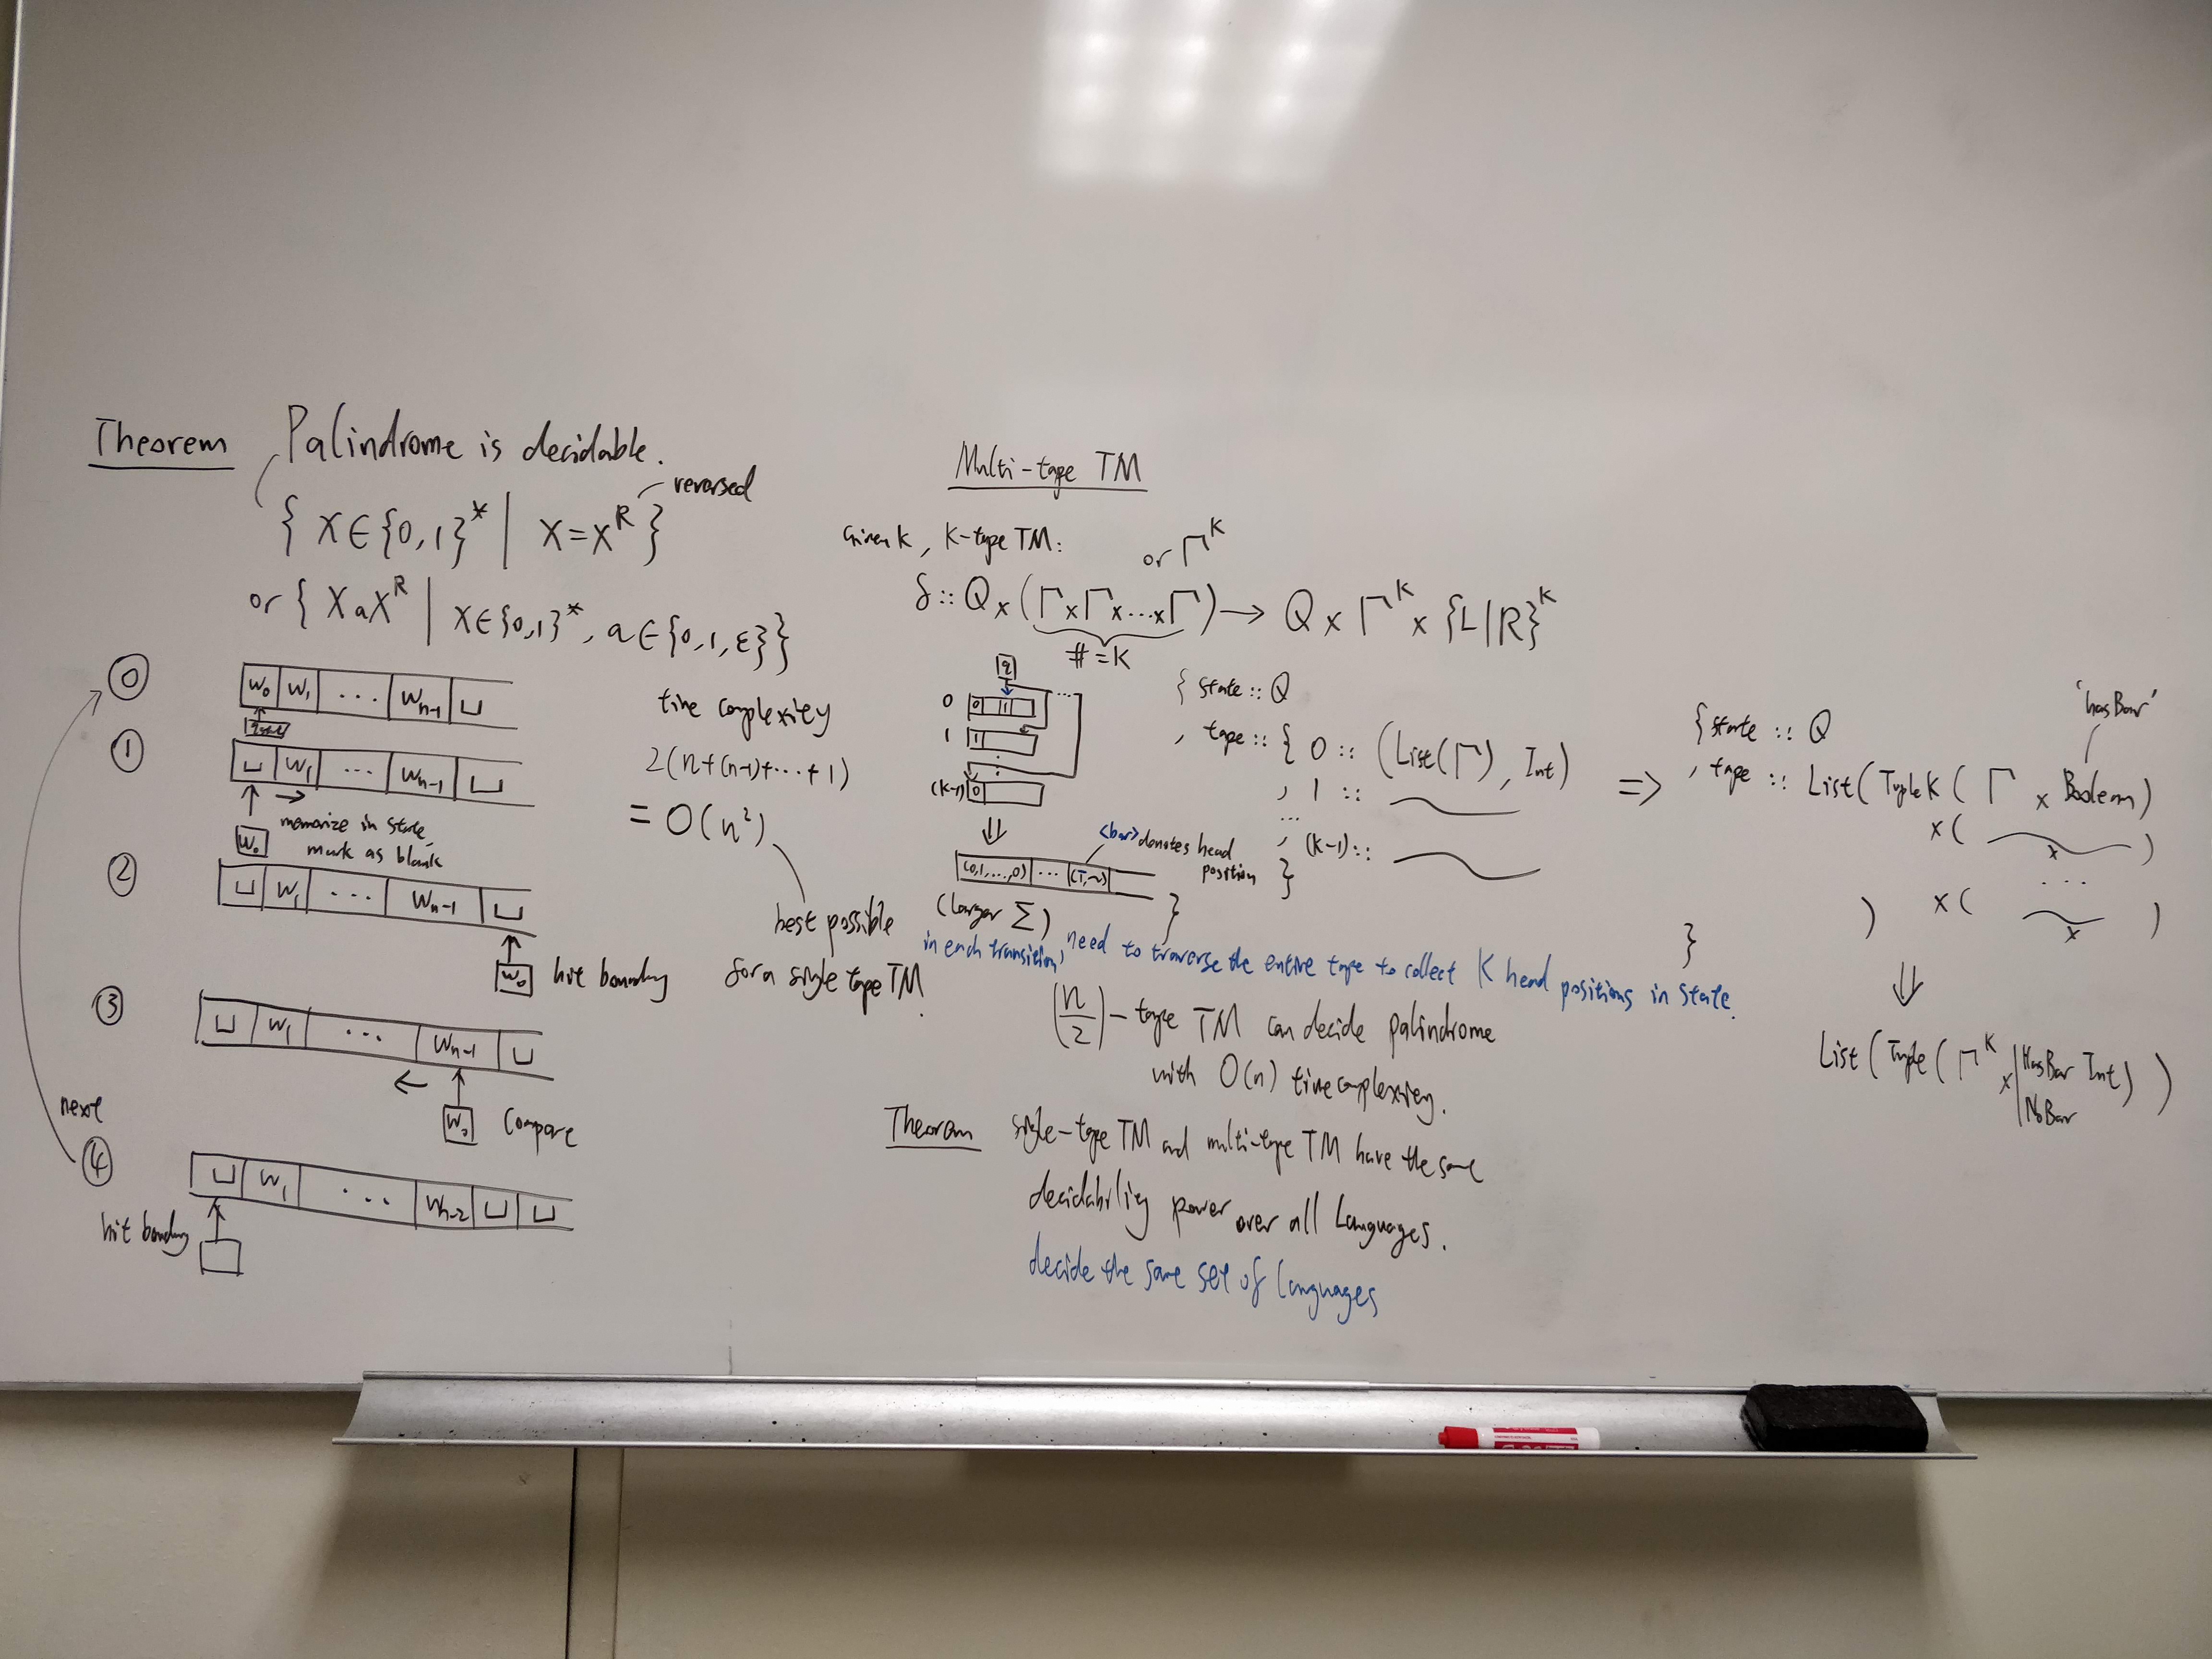 Theorem Palindrome is decidable.
reversed
{ x∈{0,1}* | x=x^R }
or { x a x^R | x∈{0,1}*, a∈{0,1,ε} }
⓪ w₀ w₁ ... wₙ₋₁ ⊔
① ⊔ w₁ ... wₙ₋₁ ⊔
→
w₀ memorize in state,
mark as blank
② ⊔ w₁ ... wₙ₋₁ ⊔
w₀ hit boundary
③ ⊔ w₁ ... wₙ₋₁ ⊔
←
w₀ compare
next
④ ⊔ w₁ ... wₙ₋₂ ⊔ ⊔
hit boundary
time complexity
2(n+(n-1)+...+1)
= O(n²)
best possible
for a single tape TM
Multi-tape TM
Given k, K-tape TM:
or Γ^K
δ :: Q × (Γ×Γ×...×Γ) → Q × Γ^K × {L|R}^K
# = K
q
...
0 0 1
1 1
:
(k-1) 0
⇓
<bar> denotes head
position
(0,1,...,0) ... (1̅,~)
(larger Σ)
{ state :: Q
, tape :: { 0 :: (List(Γ), Int)
, 1 :: ~
...
, (k-1) :: ~
}
}
⇒
'hasBar'
{ state :: Q
, tape :: List( TupleK ( Γ × Boolean )
× ( ~ × )
...
) × ( ~ × )
}
⇓
List ( Tuple ( Γ^K × | HasBar Int ) )
| NoBar
in each transition, need to traverse the entire tape to collect K head positions in state.
(n/2)-tape TM can decide palindrome
with O(n) time complexity.
Theorem single-tape TM and multi-tape TM have the same
decidability power over all Languages.
decide the same set of languages